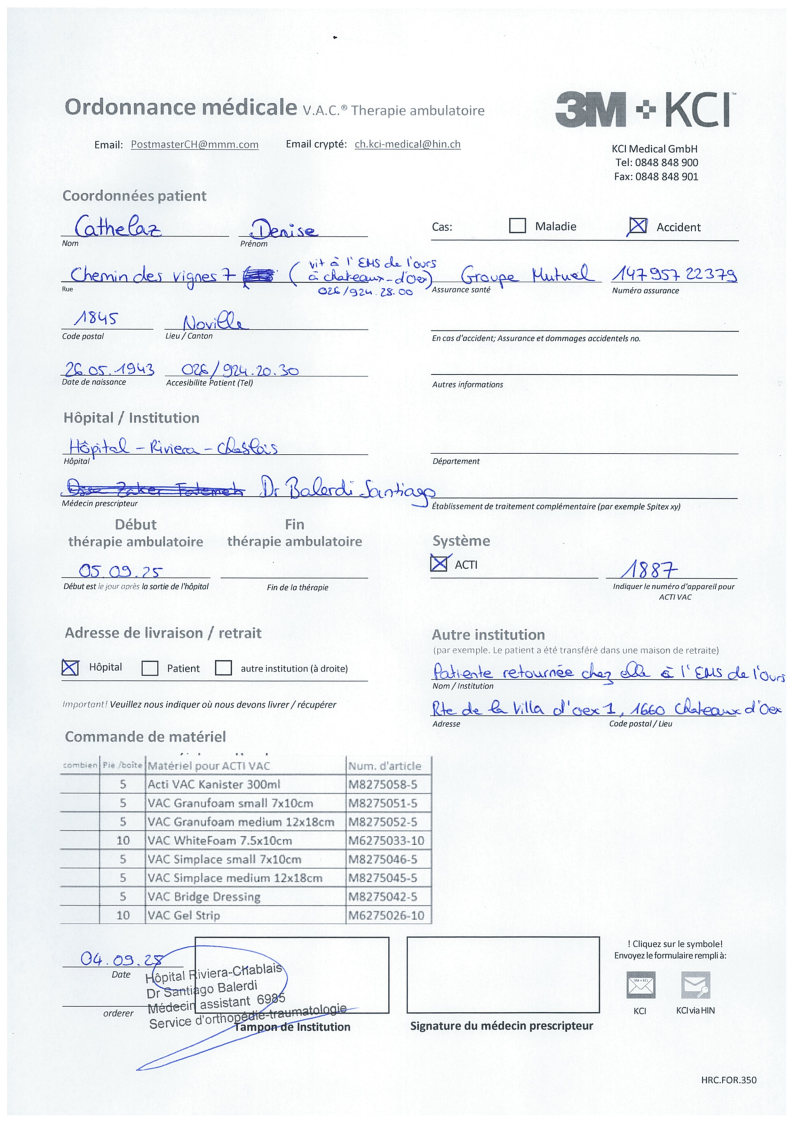 Ordonnance médicale V.A.C.® Therapie ambulatoire
3M+KCI™
Email: PostmasterCH@mmm.com Email crypté: ch.kci-medical@hin.ch
KCI Medical GmbH
Tel: 0848 848 900
Fax: 0848 848 901
Coordonnées patient
Cathelaz Denise
Nom Prénom
Cas: Maladie Accident
Chemin des vignes 7 (vit à l'EMS de l'ours
à chateaux-d'Oex)
026/924.28.00
Rue
Groupe Mutuel 147 957 22379
Assurance santé Numéro assurance
1845 Noville
Code postal Lieu / Canton
En cas d'accident; Assurance et dommages accidentels no.
26.05.1943 026/924.20.30
Date de naissance Accesibilite Patient (Tel)
Autres informations
Hôpital / Institution
Hôpital - Riviera - Chablais
Hôpital
Département
Dr Balerdi Santiago
Médecin prescripteur
Établissement de traitement complémentaire (par exemple Spitex xy)
Début Fin
thérapie ambulatoire thérapie ambulatoire
05.09.25
Début est le jour après la sortie de l'hôpital Fin de la thérapie
Système
ACTI 1887
Indiquer le numéro d'appareil pour
ACTI VAC
Adresse de livraison / retrait
Hôpital Patient autre institution (à droite)
Important! Veuillez nous indiquer où nous devons livrer / récupérer
Autre institution
(par exemple. Le patient a été transféré dans une maison de retraite)
Patiente retournée chez elle à l'EMS de l'Ours
Nom / Institution
Rte de la Villa d'oex 1, 1660 Chateaux d'Oex
Adresse Code postal / Lieu
Commande de matériel
combien Pie /boîte Matériel pour ACTI VAC Num. d'article
5 Acti VAC Kanister 300ml M8275058-5
5 VAC Granufoam small 7x10cm M8275051-5
5 VAC Granufoam medium 12x18cm M8275052-5
10 VAC WhiteFoam 7.5x10cm M6275033-10
5 VAC Simplace small 7x10cm M8275046-5
5 VAC Simplace medium 12x18cm M8275045-5
5 VAC Bridge Dressing M8275042-5
10 VAC Gel Strip M6275026-10
04.09.25
Date
orderer
Hôpital Riviera-Chablais
Dr Santiago Balerdi
Médecin assistant 6985
Service d'orthopédie-traumatologie
Tampon de Institution
Signature du médecin prescripteur
! Cliquez sur le symbole!
Envoyez le formulaire rempli à:
KCI KCI via HIN
HRC.FOR.350